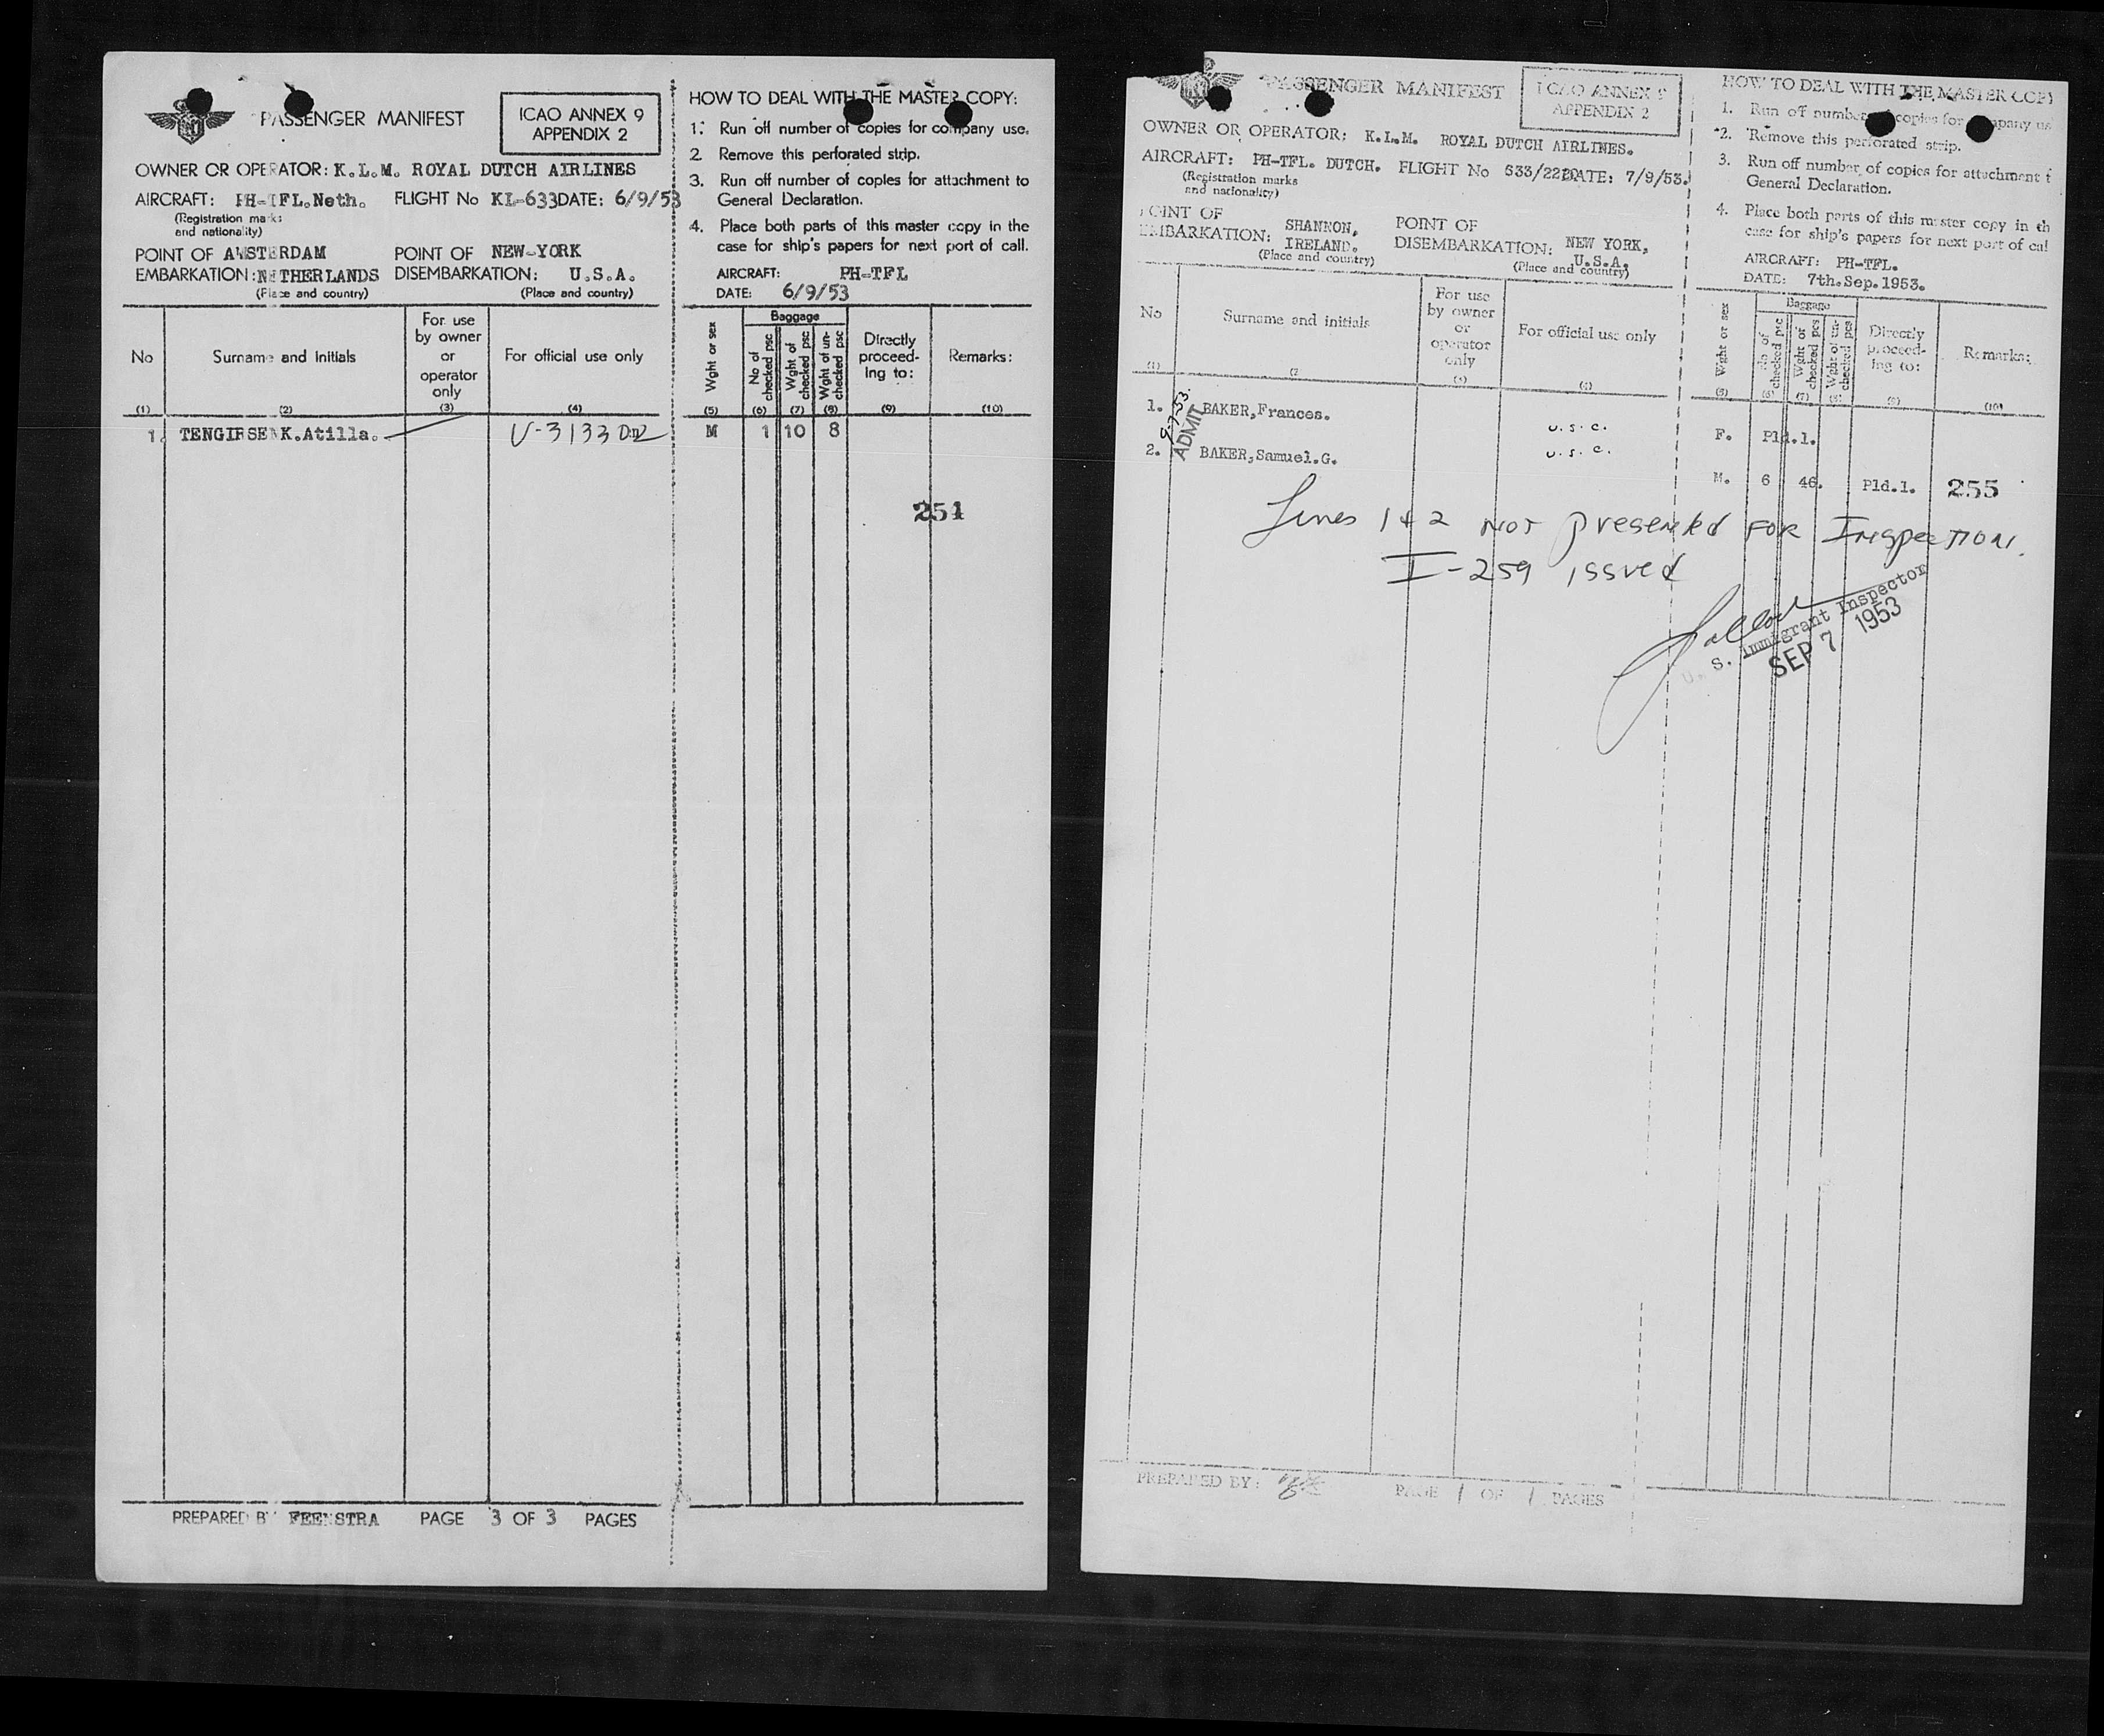 PASSENGER MANIFEST
ICAO ANNEX 9
APPENDIX 2
OWNER OR OPERATOR: K.L.M. ROYAL DUTCH AIRLINES
AIRCRAFT: PH-TFL.Neth. FLIGHT No KL-633 DATE: 6/9/53
(Registration marks
and nationality)
POINT OF AMSTERDAM POINT OF NEW-YORK
EMBARKATION: NETHERLANDS DISEMBARKATION: U.S.A.
(Place and country) (Place and country)
HOW TO DEAL WITH THE MASTER COPY:
1. Run off number of copies for company use.
2. Remove this perforated strip.
3. Run off number of copies for attachment to
General Declaration.
4. Place both parts of this master copy in the
case for ship's papers for next port of call.
AIRCRAFT: PH-TFL
DATE: 6/9/53
No
Surname and initials
For use
by owner
or
operator
only
For official use only
Wght or sex
Baggage
No of
checked psc
Wght of
checked psc
Wght of un-
checked psc
Directly
proceed-
ing to:
Remarks:
(1) (2) (3) (4) (5) (6) (7) (8) (9) (10)
1. TENGIRSENK.Atilla. V-3133 M 1 10 8
254
PREPARED BY FEENSTRA PAGE 3 OF 3 PAGES
PASSENGER MANIFEST
ICAO ANNEX 9
APPENDIX 2
OWNER OR OPERATOR: K.L.M. ROYAL DUTCH AIRLINES.
AIRCRAFT: PH-TFL. DUTCH. FLIGHT No DATE: 7/9/53.
(Registration marks
and nationality)
POINT OF SHANNON, POINT OF NEW YORK,
EMBARKATION: IRELAND. DISEMBARKATION: U.S.A.
(Place and country) (Place and country)
HOW TO DEAL WITH THE MASTER COPY
1. Run off number of copies for company us
2. Remove this perforated strip.
3. Run off number of copies for attachment t
General Declaration.
4. Place both parts of this master copy in th
case for ship's papers for next port of cal
AIRCRAFT: PH-TFL.
DATE: 7th.Sep.1953.
No
Surname and initials
For use
by owner
or
operator
only
For official use only
Wght or sex
Baggage
No of
checked pcs
Wght of
checked pcs
Wght of un-
checked pcs
Directly
proceed-
ing to:
Remarks:
(1) (2 (3) (4) (5) (6) (7) (8) (9) (10)
9-7-53
ADMIT
1. BAKER,Frances. U.S.C. F. Pld.1.
2. BAKER,Samuel.G. U.S.C. M. 6 46. Pld.1. 255
Lines 1 & 2 NOT presented FOR INSPECTION.
I-259 issued
U. S. Immigrant Inspector
SEP 7 1953
PREPARED BY: PAGE 1 OF 1 PAGES